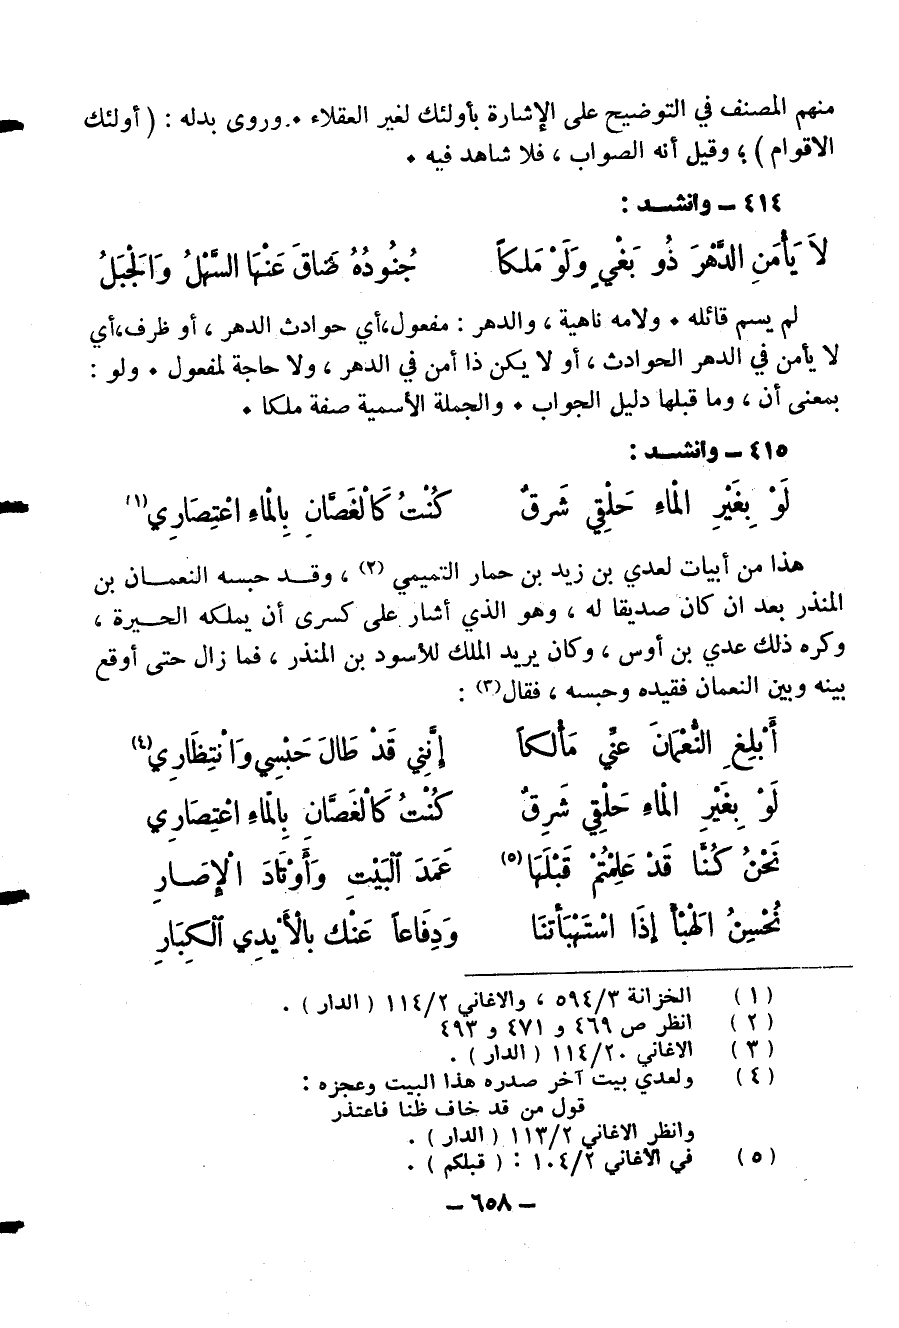 منهم المصنف في التوضيح على الإشارة بأولئك لغير العقلاء ٠ وروى بدله : ( أولئك
الاقوام ) ؛ وقيل أنه الصواب ، فلا شاهد فيه ٠
٤١٤ – وانشد :
لاَ يَأْمَنِ الدَّهْرَ ذُو بَغْيٍ وَلَوْ مَلكاً جُنُودُهُ ضَاقَ عَنْهَا السَّهْلُ وَالْجَبَلُ
لم يسم قائله ٠ ولامه ناهية ، والدهر : مفعول،أي حوادث الدهر ، أو ظرف،أي
لا يأمن في الدهر الحوادث ، أو لا يكن ذا أمن في الدهر ، ولا حاجة لمفعول ٠ ولو :
بمعنى أن ، وما قبلها دليل الجواب ٠ والجملة الأسمية صفة ملكا ٠
٤١٥ – وانشد :
لَوْ بِغَيْرِ الْمَاءِ حَلْقِي شَرِقٌ كُنْتُ كَالْغَصَّانِ بِالْمَاءِ اعْتِصَارِي(١)
هذا من أبيات لعدي بن زيد بن حمار التميمي (٢) ، وقد حبسه النعمان بن
المنذر بعد ان كان صديقا له ، وهو الذي أشار على كسرى أن يملكه الحيرة ،
وكره ذلك عدي بن أوس ، وكان يريد الملك للأسود بن المنذر ، فما زال حتى أوقع
بينه وبين النعمان فقيده وحبسه ، فقال(٣) :
أَبْلِغِ النُّعْمَانَ عَنِّي مَأْلكاً إِنَّنِي قَدْ طَالَ حَبْسِي وَانْتِظَارِي(٤)
لَوْ بِغَيْرِ الْمَاءِ حَلْقِي شَرِقٌ كُنْتُ كَالْغَصَّانِ بِالْمَاءِ اعْتِصَارِي
نَحْنُ كُنَّا قَدْ عَلِمْتُمْ قَبْلَهَا(٥) عَمَدَ الْبَيْتِ وَأَوْتَادَ الْإِصَارِ
نُحْسِنُ الْهَبْأَ إِذَا اسْتَهْبَأْتَنَا وَدِفَاعاً عَنْك بِالْأَيْدِي الْكِبَارِ
(١) الخزانة ٥٩٤/٣ ، والاغاني ١١٤/٢ ( الدار ) .
(٢) انظر ص ٤٦٩ و ٤٧١ و ٤٩٣
(٣) الاغاني ١١٤/٢٠ ( الدار ) .
(٤) ولعدي بيت آخر صدره هذا البيت وعجزه :
قول من قد خاف ظنا فاعتذر
وانظر الاغاني ١١٣/٢ ( الدار ) .
(٥) في الاغاني ١٠٤/٢ : ( قبلكم ) .
– ٦٥٨ –